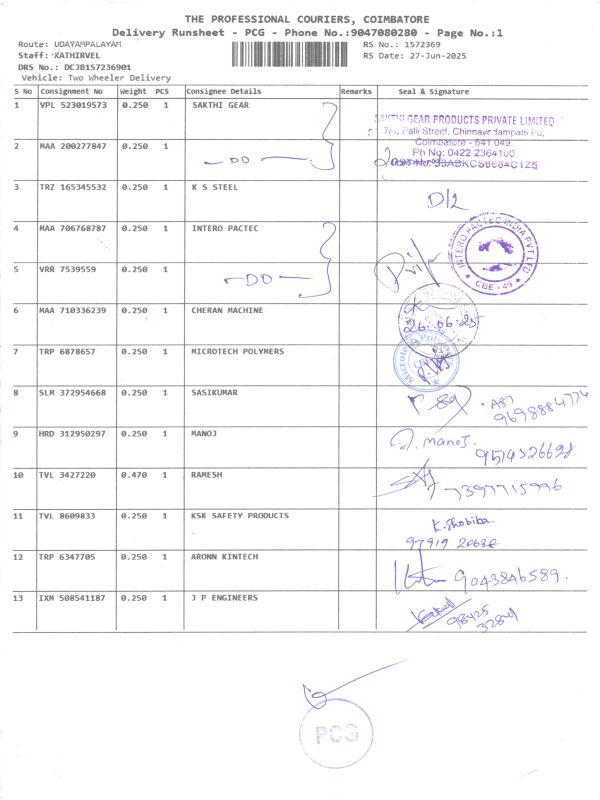 THE PROFESSIONAL COURIERS, COIMBATORE
Delivery Runsheet - PCG - Phone No.:9047080280 - Page No.:1
Route: UDAYAMPALAYAM RS No.: 1572369
Staff: KATHIRVEL RS Date: 27-Jun-2025
DRS No.: DCJB157236901
Vehicle: Two Wheeler Delivery
S No Consignment No Weight PCS Consignee Details Remarks Seal & Signature
1 VPL 523019573 0.250 1 SAKTHI GEAR
SAKTHI GEAR PRODUCTS PRIVATE LIMITED
Palli Street, Chinnavedampatti Po,
Coimbatore - 641 049.
2 MAA 200277847 0.250 1
Ph No: 0422 2364100
- DO -
3 TRZ 165345532 0.250 1 K S STEEL
D/2
4 MAA 706768787 0.250 1 INTERO PACTEC
INTERO PACTEC INDIA PVT LTD
CBE - 49
5 VRR 7539559 0.250 1
- DO -
6 MAA 710336239 0.250 1 CHERAN MACHINE
26.06.25
7 TRP 6878657 0.250 1 MICROTECH POLYMERS
Microtech Polymers
8 SLM 372954668 0.250 1 SASIKUMAR
9698884774
9 HRD 312950297 0.250 1 MANOJ
Manoj.
9514326628
10 TVL 3427220 0.470 1 RAMESH
7397715996
11 TVL 8609833 0.250 1 KSK SAFETY PRODUCTS
K.Shobika
97919 20698
12 TRP 6347705 0.250 1 ARONN KINTECH
9043846589.
13 IXM 508541187 0.250 1 J P ENGINEERS
98425
PCG